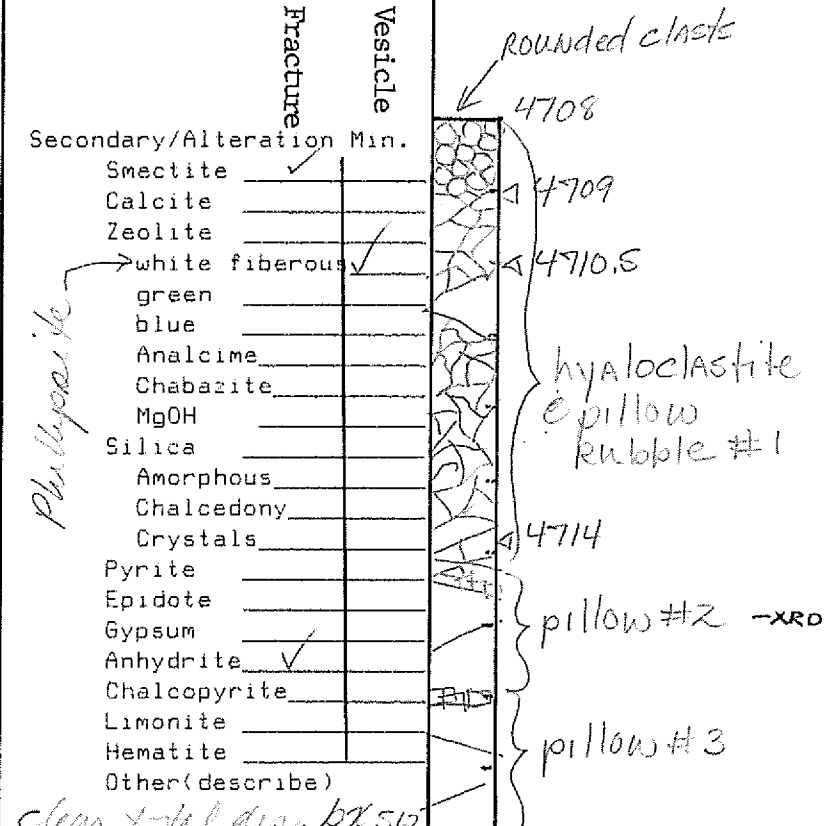 Fracture
Vesicle
Secondary/Alteration Min.
Smectite ✓
Calcite
Zeolite
white fiberous ✓
green
blue
Analcime
Chabazite
MgOH
Silica
Amorphous
Chalcedony
Crystals
Pyrite
Epidote
Gypsum
Anhydrite ✓
Chalcopyrite
Limonite
Hematite
Other(describe)
clear
Rounded clasts
4708
4709
4710.5
hyaloclastite
pillow
Rubble #1
4714
pillow #2 -XRD
pillow #3